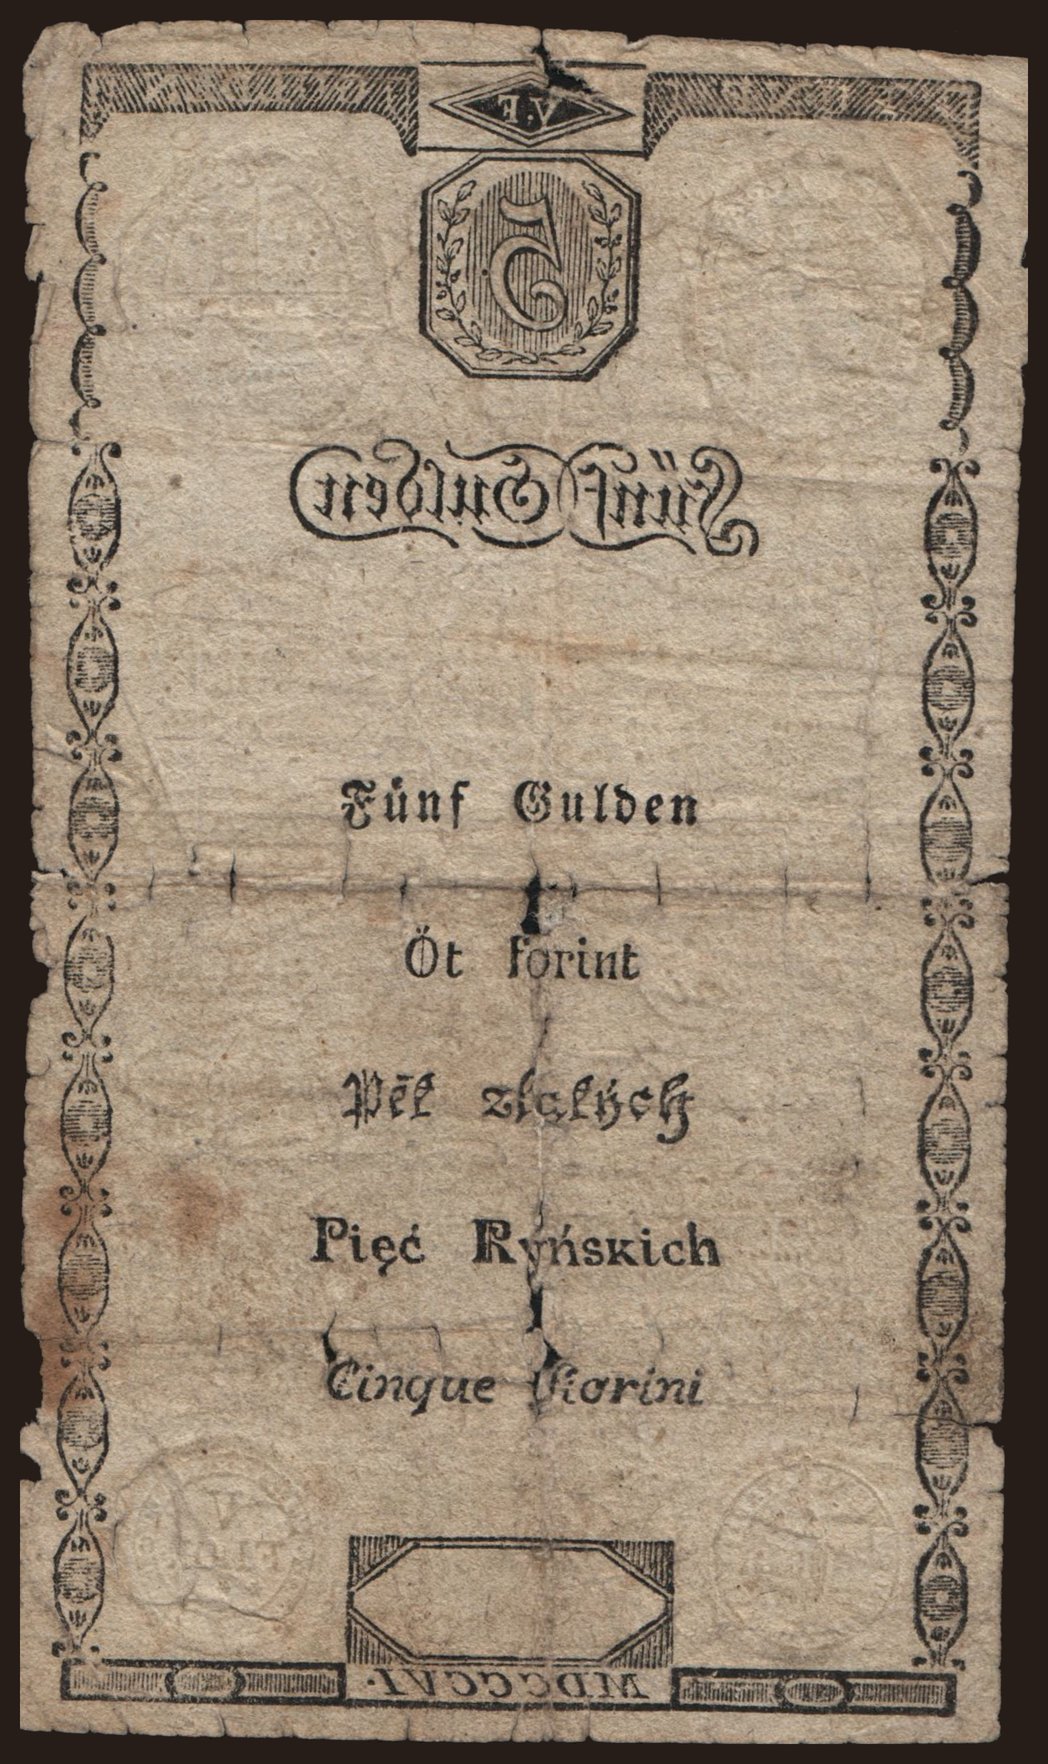 A.E
5
Fünf Gulden
Fünf Gulden
Öt forint
Pēt zlatých
Pięć Ryńskich
Cinque Fiorini
MDCCCVI.